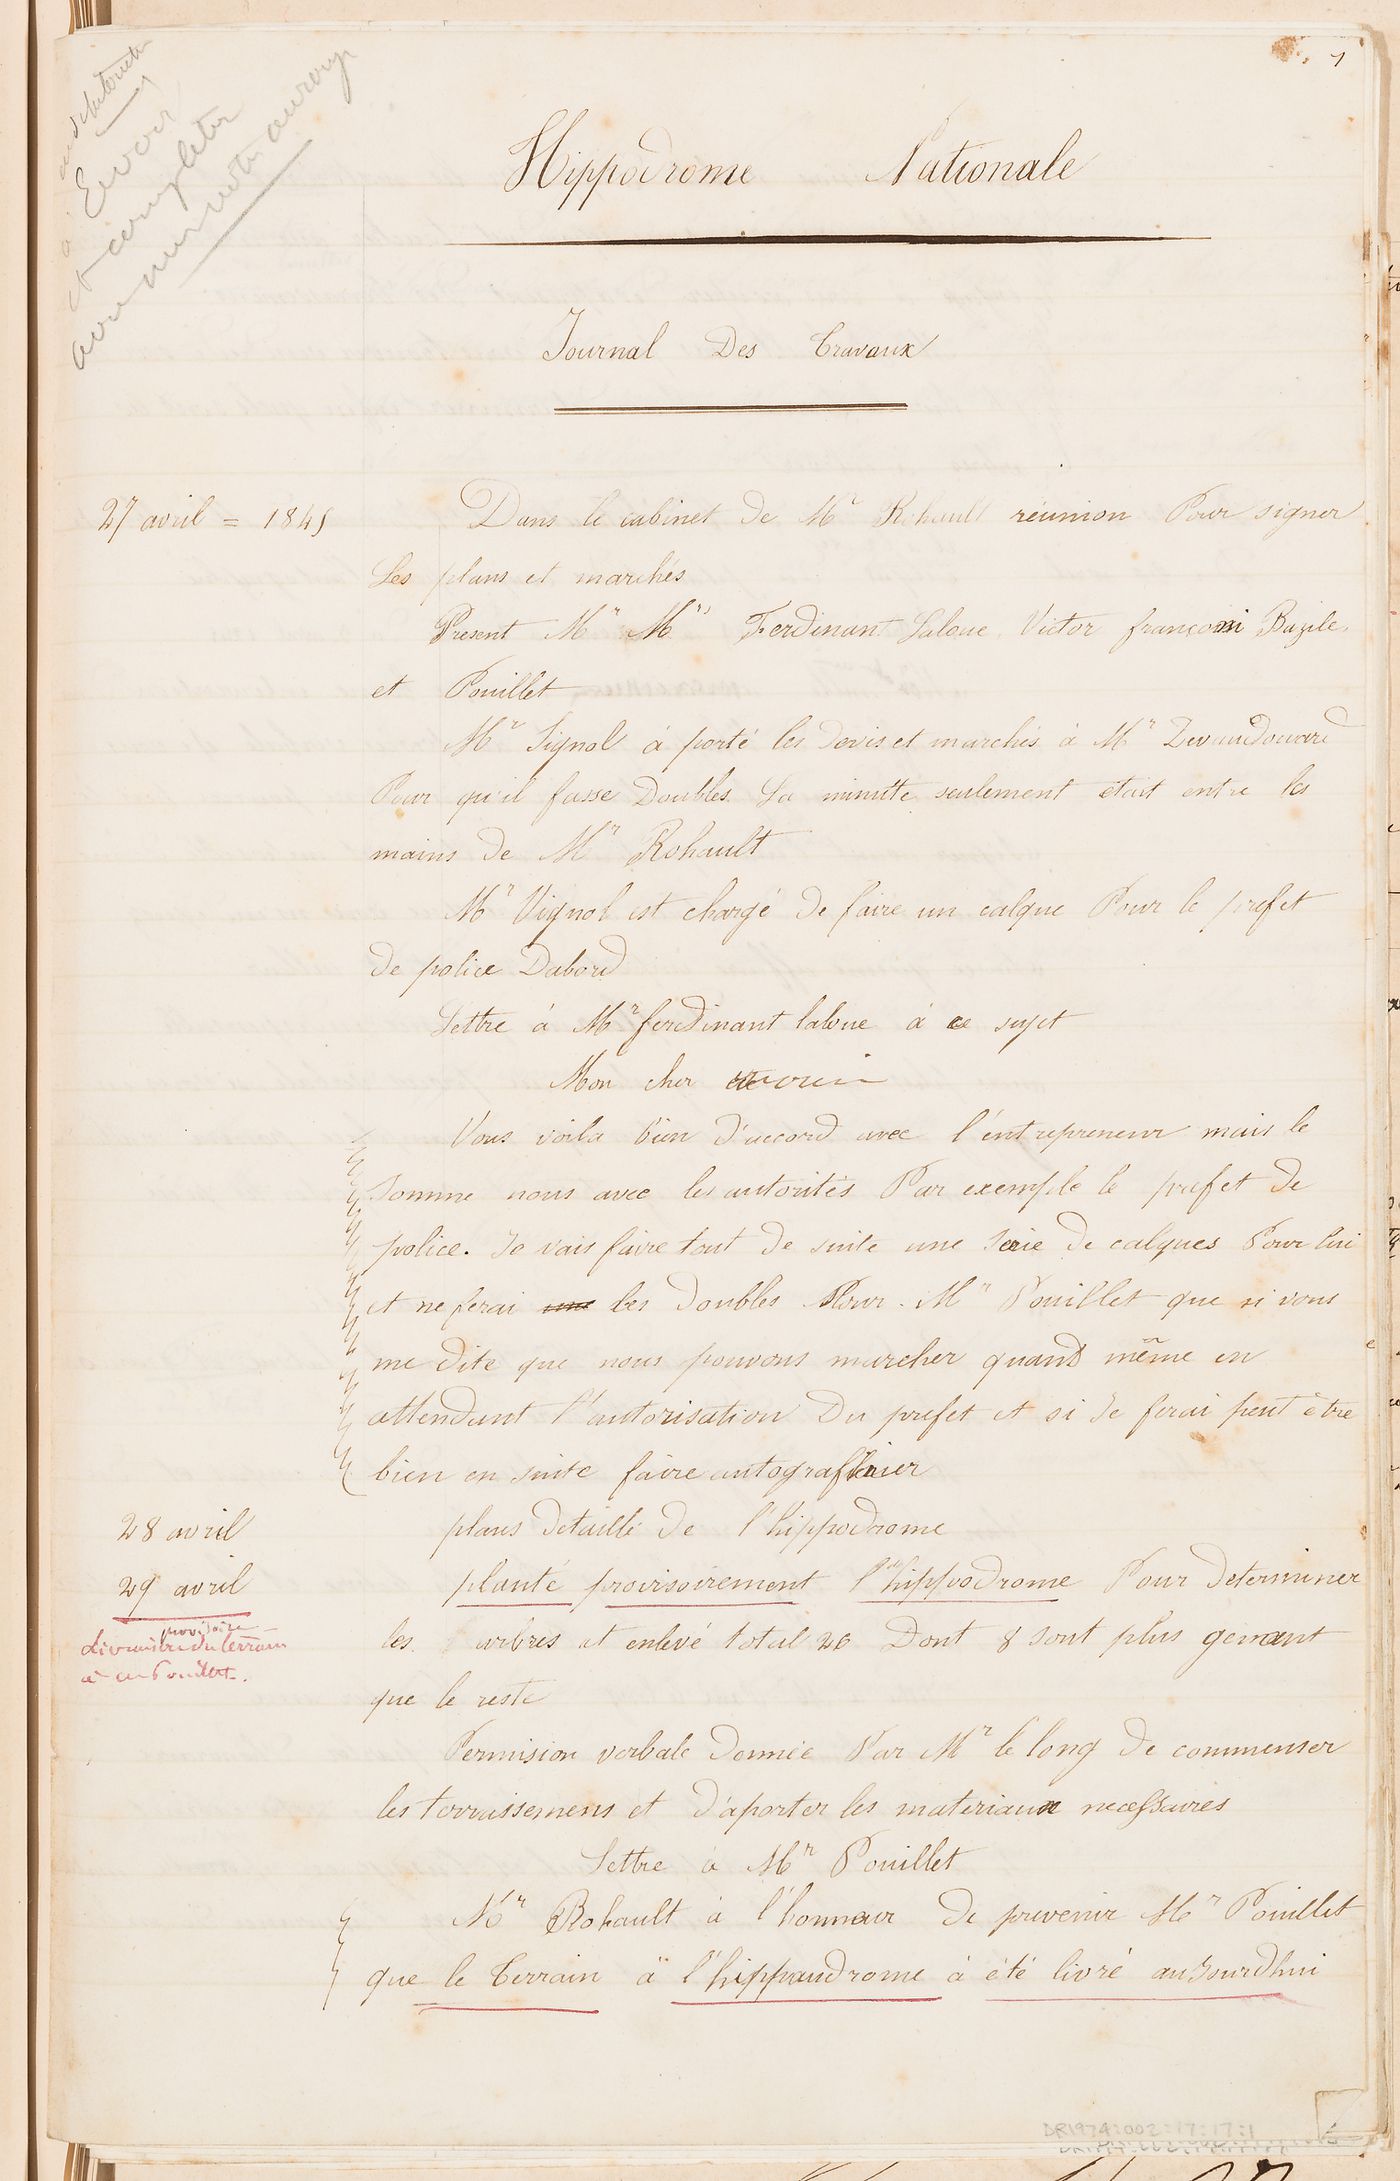 1
à Envoir
et completer
avec mes notes au crayon
Hippodrome Nationale
Journal Des Travaux
27 avril = 1845
Dans le cabinet de Mr Rohault réunion Pour signer
Les plans et marchés
Present Mr Mrs Ferdinant Laloue, Victor françoni Bazile,
et Pouillet
Mr Vignol à porté les devis et marchés à Mr
Pour qu'il fasse Doubles. La minute seulement était entre les
mains de Mr Rohault
Mr Vignol est chargé de faire un calque Pour le prefet
de police Dabord
Lettre à Mr ferdinant laloue à ce sujet
Mon cher
Vous voila bien d'accord avec l'entrepreneur mais le
somme nous avec les autorités Par exemple le prefet de
police. Je vais faire tout de suite une Serie de calques Pour lui
et ne ferai une les Doubles Pour Mr Pouillet que si vous
me dite que nous pouvons marcher quand même en
attendant l'autorisation Du prefet et si Je ferai peut être
bien en suite faire autograffier
28 avril
plans detaillé de l'hippodrome
29 avril
planté provisoirement l'hippodrome Pour determiner
provisoire
Livraison du terrain
à Mr Pouillet.
les arbres et enlevé total 26 Dont 8 sont plus genant
que le reste
Permision verbale donnée Par Mr le long de commenser
les terrassemens et d'aporter les materiaux necessaires
Lettre à Mr Pouillet
Mr Rohault à l'honneur de prevenir Mr Pouillet
que le terrain à l'hippaudrome à été livré aujourdhui
DR1974:002:17:17:1